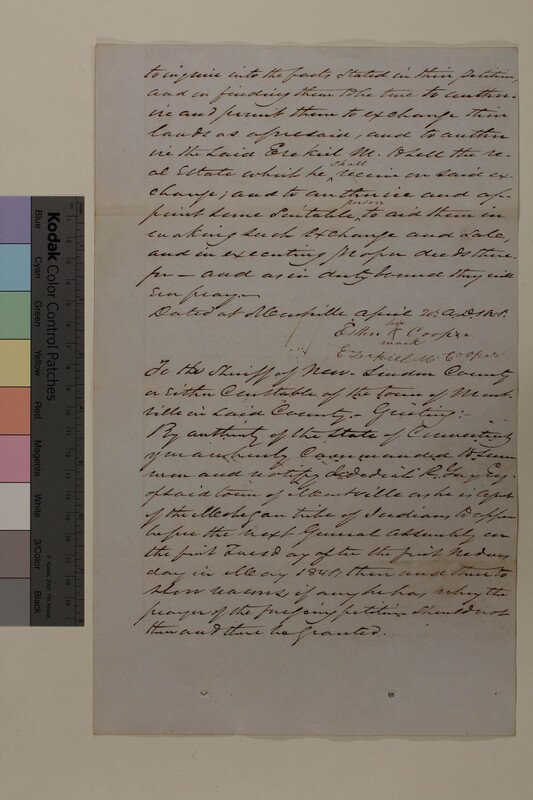 to inquire into the facts stated in their petition,
and on finding them to be true to author-
ize and permit them to exchange their
lands as aforesaid, and to author
ize the said Ezekiel M. to sell the re-
al Estate which he shall receive on said ex-
change; and to authorize and ap-
point some suitable person to aid them in
making such exchange and sale,
and in executing proper deeds there-
for — and as in duty bound they will
Ever pray.
Dated at Montville April 20. A.D.
Esther her X mark Cooper
Ezekiel M. Cooper
To the Sheriff of New-London County
or Either Constable of the town of Mont-
ville in said County, Greeting:
By authority of the State of Connecticut
you are hereby Commanded to Sum
mon and notify Jedediah R. Gay Esq.
of said town of Montville as he is agent
of the Mohegan tribe of Indians to appear
before the next General Assembly on
the first Tuesday after the first Wednes
day in May then and there to
show reasons if any he has why the
prayer of the foregoing petition should not
then and there be granted.
Kodak Color Control Patches
Blue
Cyan
Green
Yellow
Red
Magenta
White
3/Color
Black